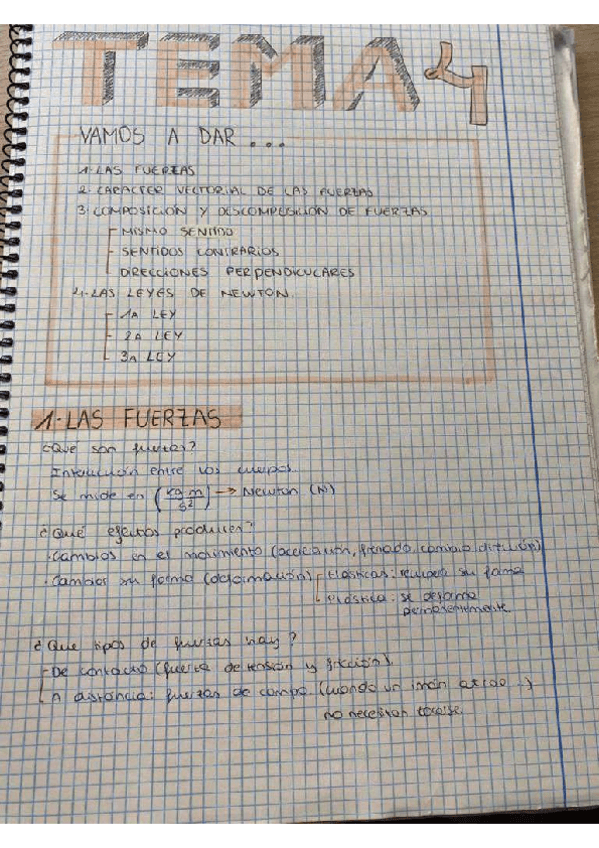 TEMA 4
VAMOS A DAR...
1. LAS FUERZAS
2. CARÁCTER VECTORIAL DE LAS FUERZAS
3. COMPOSICIÓN Y DESCOMPOSICIÓN DE FUERZAS
- MISMO SENTIDO
- SENTIDOS CONTRARIOS
- DIRECCIONES PERPENDICULARES
4.-LAS LEYES DE NEWTON.
- 1A LEY
- 2A LEY
- 3A LEY
1.-LAS FUERZAS
¿Qué son fuerzas?
Interacción entre los cuerpos.
Se mide en (kg m / s²) -> Newton (N)
¿Qué efectos producen?
·Cambios en el movimiento (aceleración, frenado, cambio dirección)
·Cambios su forma (deformación) Elásticas: recupera su forma
Plástica: se deforma
permanentemente.
¿Que tipos de fuerzas hay?
-De contacto (fuerza de tensión y fricción).
A distancia: fuerzas de campo. (cuando un imán atrae..)
no necesitan tocarse.